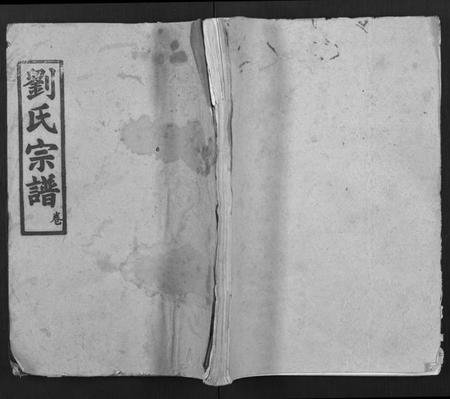 劉氏宗譜
卷